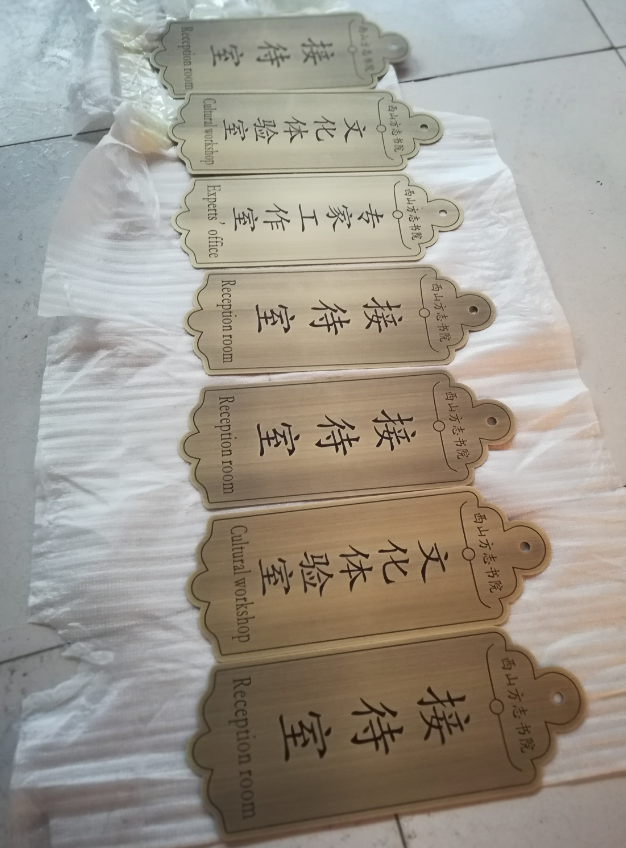 西山方志书院
接待室
Reception room
西山方志书院
文化体验室
Cultural workshop
西山方志书院
专家工作室
Experts' office
西山方志书院
接待室
Reception room
西山方志书院
接待室
Reception room
西山方志书院
文化体验室
Cultural workshop
西山方志书院
接待室
Reception room